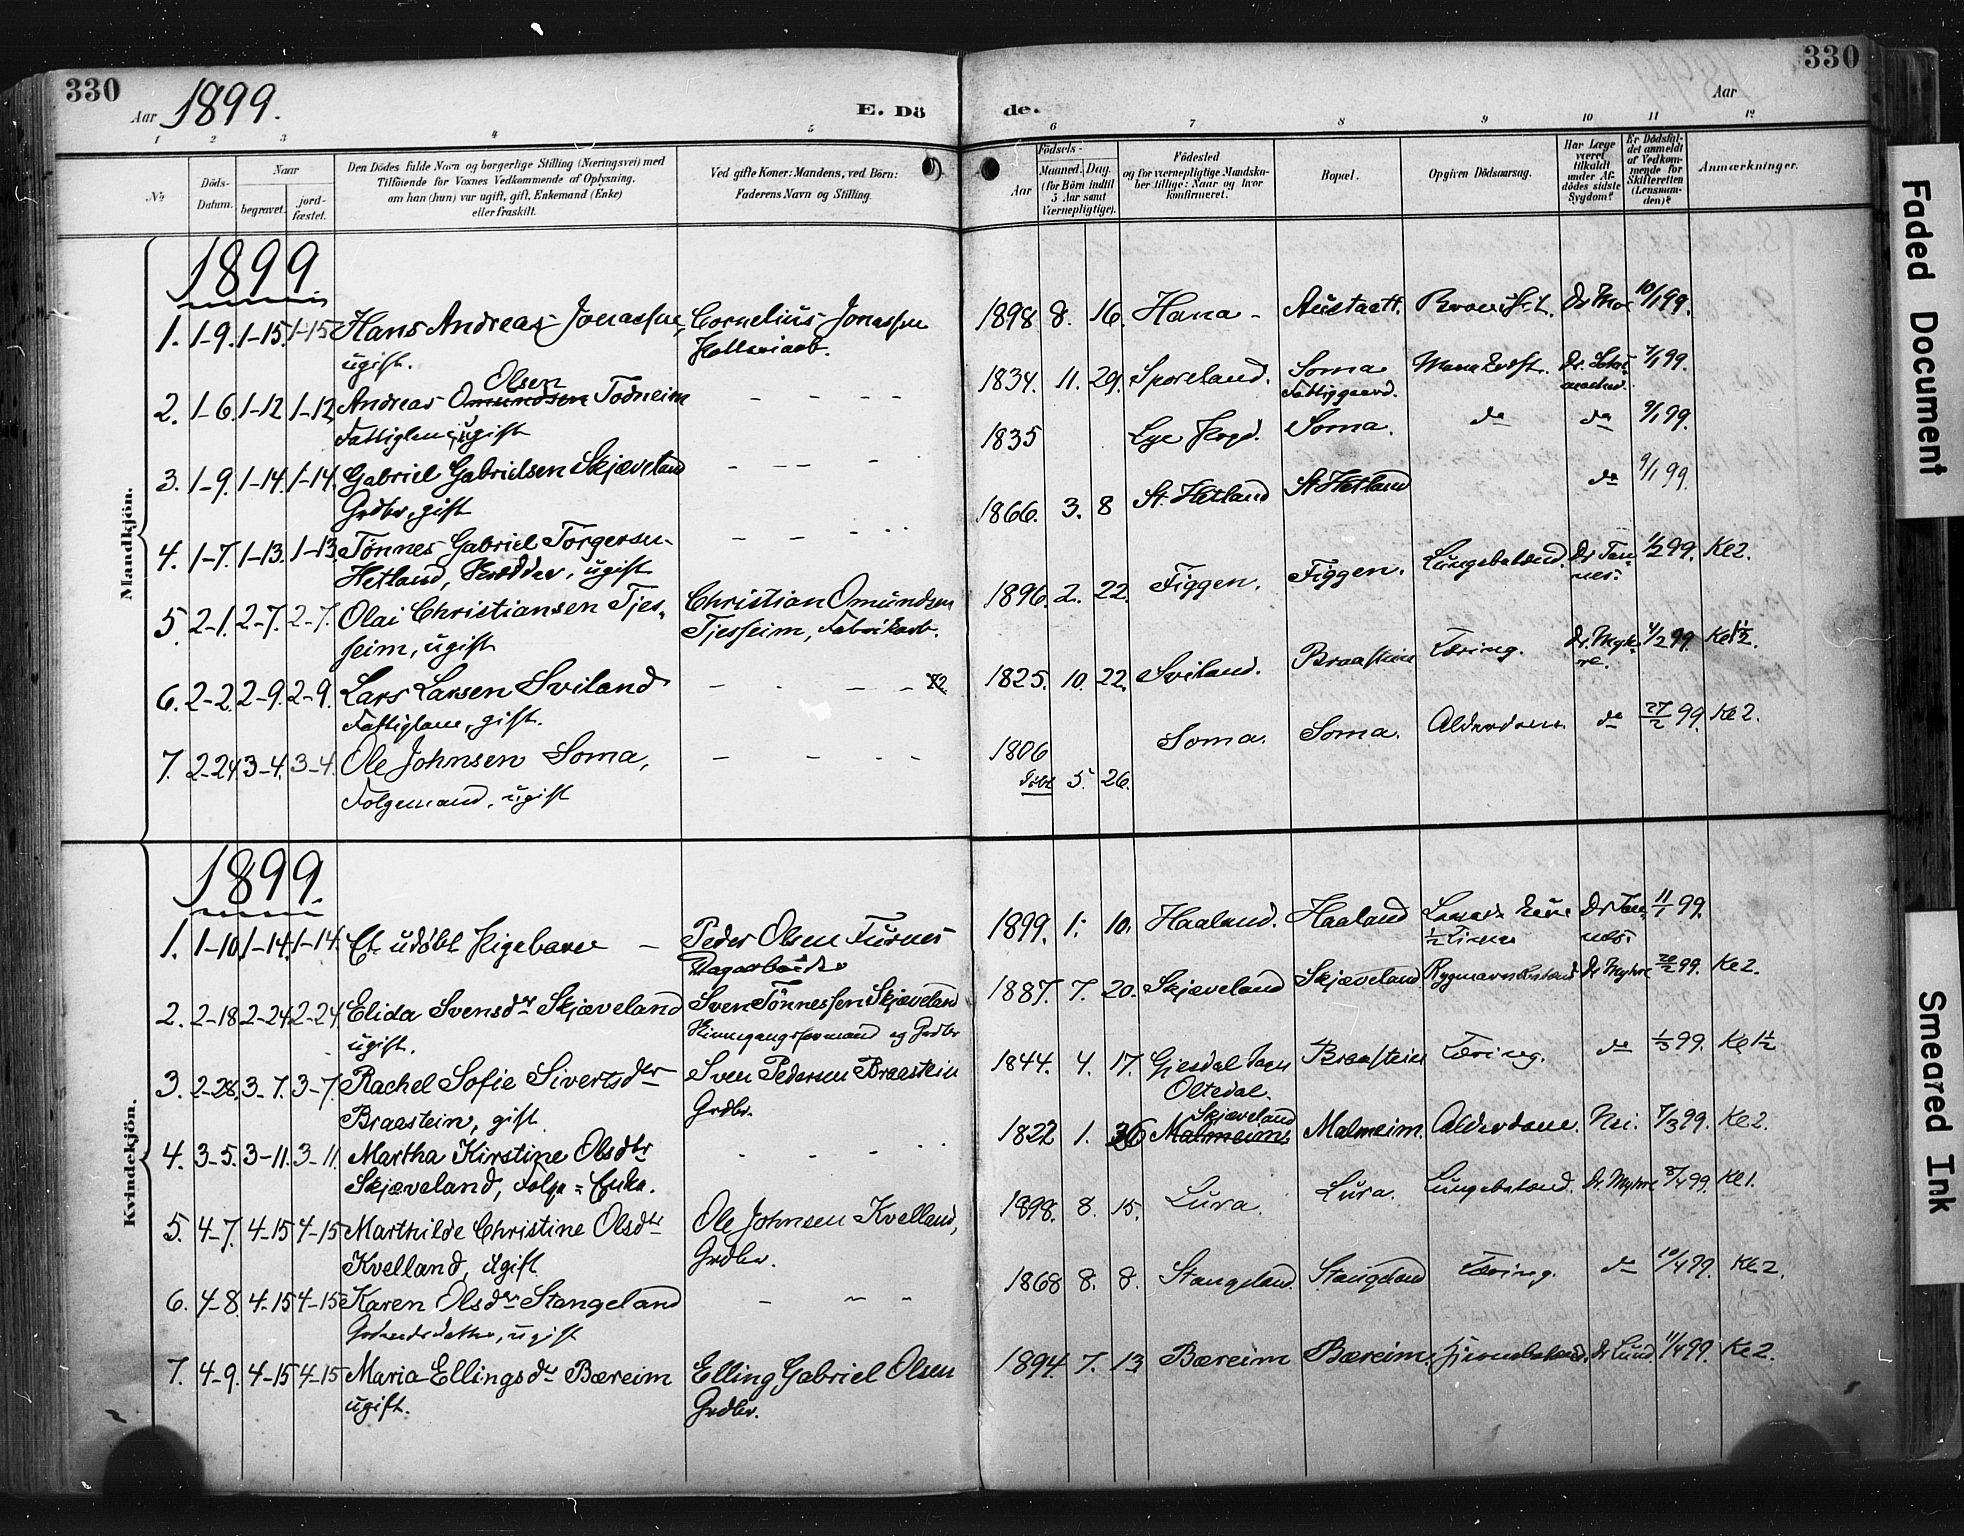 330
330
Aar 1899.
E. Dö
de.
Aar
1 2 3 4 5 6 7 8 9 10 11 12
№
Döds-Datum.
Naar
begravet.
jord-fæstet.
Den Dödes fulde Navn og borgerlige Stilling (Næringsvei) med
Tilföiende for Voxnes Vedkommende af Oplysning,
om han (hun) var ugift, gift, Enkemand (Enke)
eller fraskilt.
Ved gifte Koner: Mandens, ved. Börn:
Faderens Navn og Stilling.
Födsels-
Aar
Maaned. Dag.
(for Börn indtil
5 Aar samt
Værnepligtige).
Födested
og for værnepligtige Mandska-
ber tillige: Naar og hvor
konfirmeret.
Bopæl.
Opgiven Dödsaarsag.
Har Læge
været
tilkaldt
under Af-
dödes sidste
Sygdom?
Er Dödsfal-
det anmeldt
af Vedkom-
mende for
Skifteretten
(Lensman-
den)?
Anmærkninger.
Mandkjön.
1899
1. 1-9. 1-15. 1-15 Hans Andreas Jonassen, Cornelius Jonassen 1898 8. 16. Hana - Austaatt. Dr 10/1 99.
ugift.
2. 1-6. 1-12 1-12 Andreas Omundsen Olsen Todneim - - - - 1834. 11. 29. Soma Dr. 7/1 99.
Fattiglem, ugift Fattiggaard.
3. 1-9. 1-14. 1-14. Gabriel Gabrielsen Skjæveland - - - - 1835 Lye Soma. do do 9/1 99.
Grdbr, gift
4. 1-7. 1-13. 1-13 Tønnes Gabriel Torgersen - - - - 1866. 3. 8 St. Hetland St Hetland do 9/1 99.
Hetland, ugift
5. 2-1. 2-7. 2-7. Olai Christiansen Tjes- Christian Omundsen 1896. 2. 22. Figgen. Figgen. Lungebetænd. Dr Tan- 1/2 99. Kl 2.
seim, ugift Tjesseim, Fabrikarb. nes.
6. 2-2. 2-9. 2-9. Lars Larsen Sviland - - - - 1825. 10. 22. Sviland. Braastein Tæring. Dr. Myh- 4/2 99. Kl 1½.
Fattiglem, gift. re.
7. 2-24. 3-4. 3-4. Ole Johnsen Soma, - - - - 1806 Soma. Soma. Alderdom. do 27/2 99. Kl 2.
Folgemand, ugift 5. 26.
Kvindekjön.
1899.
1. 1-10. 1-14. 1-14. Et udøbt Pigebarn - Peder Olsen Furnes 1899. 1. 10. Haaland. Haaland Dr Tan- 11/1 99.
Dagarbeider nes.
2. 2-18. 2-24. 2-24. Elida Svensdr Skjæveland Sven Tönnessen Skjæveland 1887. 7. 20. Skjæveland Skjæveland Dr Myhre 20/2 99. Kl 2.
ugift. og Grdbr
3. 2-28. 3-7. 3-7. Rachel Sofie Sivertsdr Sven Pedersen Braastein 1844. 4. 17. Gjesdal Braastein Tæring. do 1/3 99. Kl 1½
Braastein, gift. Grdbr. Oltedal.
4. 3-5. 3-11. 3-11 Martha Kirstine Olsdtr - - - 1822 1. Malmeim Skjæveland Malmeim. Alderdom. Nei. 7/3 99. Kl 2.
Skjæveland, Folge-Enke.
5. 4-7. 4-15 4-15 Marthilde Christine Olsdtr Ole Johnsen Kvelland, 1898. 8. 15. Lura. Lura. Lungebetænd. Dr Myhre 8/4 99. Kl 1.
Kvelland, ugift Grdbr.
6. 4-8. 4-15 4-15 Karen Olsdr Stangeland - - - 1868 8. 8. Stangeland. Stangeland Tæring. do 10/4 99. Kl 2.
ugift
7. 4-9. 4-15 4-15 Maria Ellingsdr Bæreim Elling Gabriel Olsen 1894. 7. 13 Bæreim Bæreim. Dr Lund. 11/4 99. Kl 2.
ugift. Grdbr.
Faded Document
Smeared Ink